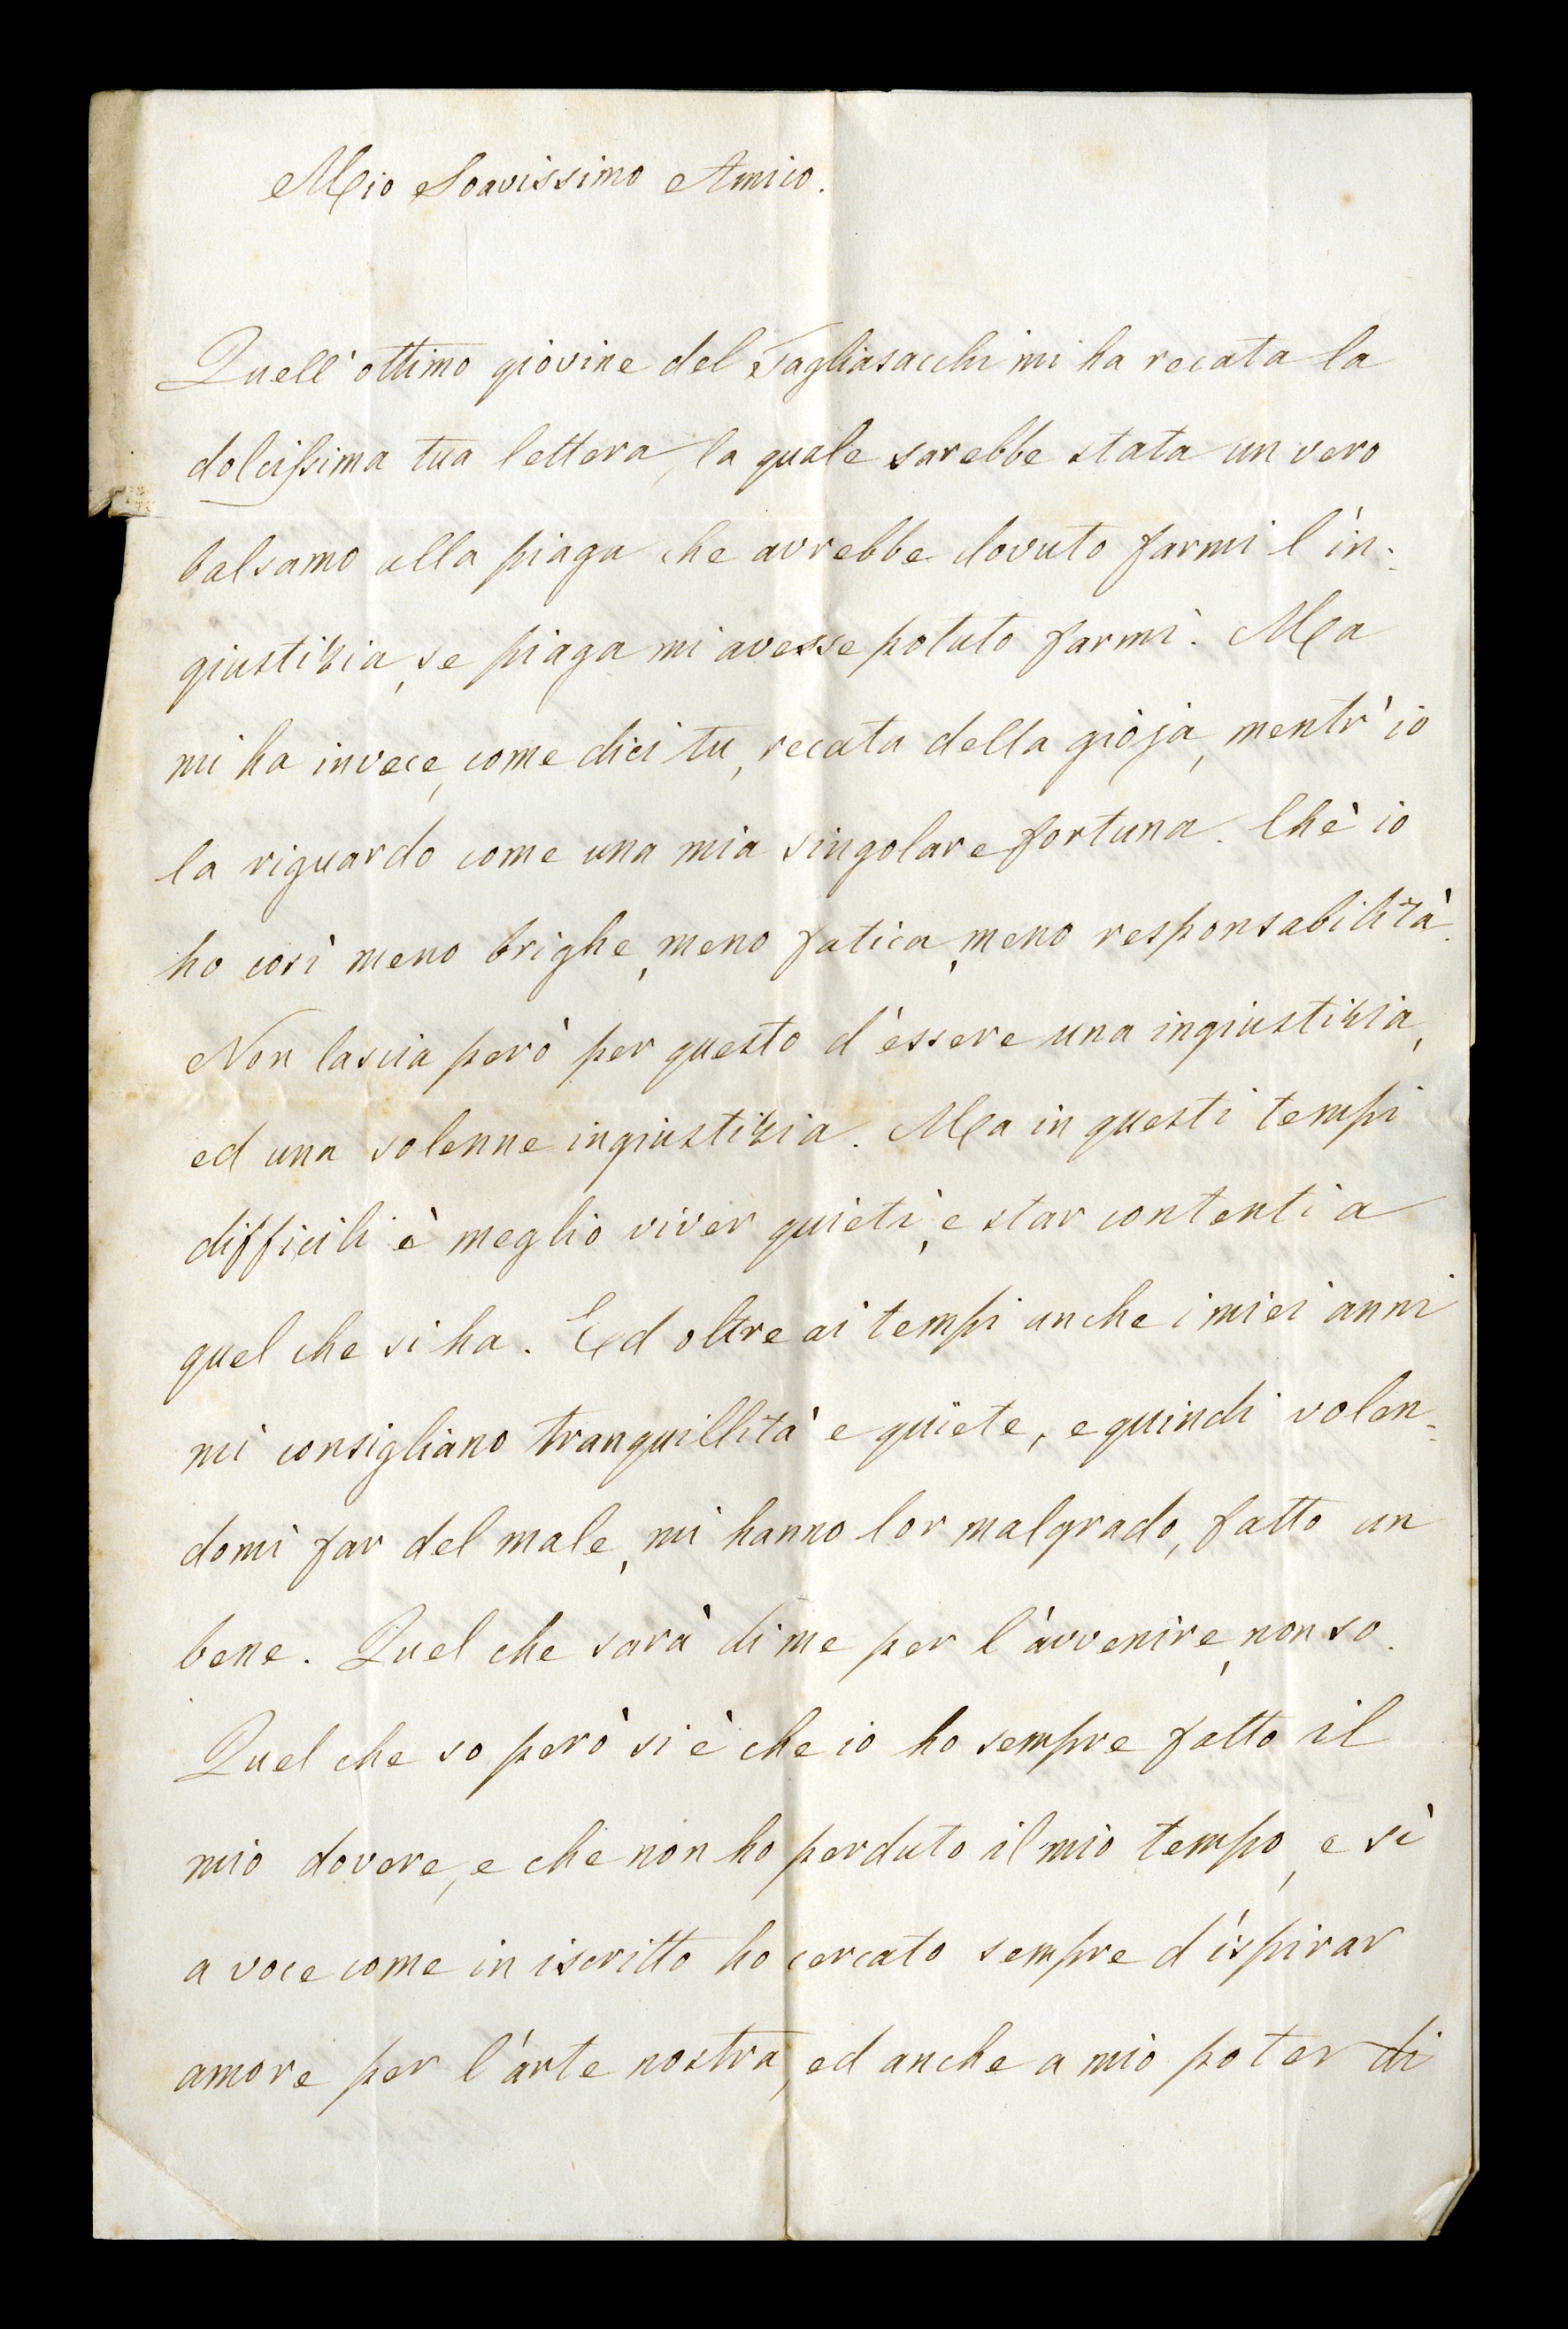 Mio Soavissimo Amico.
Quell'ottimo giovine del Tagliasacchi mi ha recata la
dolcissima tua lettera, la quale sarebbe stata un vero
balsamo alla piaga che avrebbe dovuto farmi l'in-
giustizia, se piaga mi avesse potuto farmi. Ma
mi ha invece, come dici tu, recata della gioja, mentr'io
la riguardo come una mia singolare fortuna. Chè io
ho così meno brighe, meno fatica, meno responsabilità.
Non lascia però per questo d'essere una ingiustizia,
ed una solenne ingiustizia. Ma in questi tempi
difficili è meglio viver quieti, e star contenti a
quel che si ha. Ed oltre ai tempi anche i miei anni
mi consigliano tranquillità e quiete, e quindi volen-
domi far del male, mi hanno lor malgrado, fatto un
bene. Quel che sarà di me per l'avvenire, non so.
Quel che so però si è che io ho sempre fatto il
mio dovere, e che non ho perduto il mio tempo, e sì
a voce come in iscritto ho cercato sempre d'ispirar
amore per l'arte nostra, ed anche a mio poter di